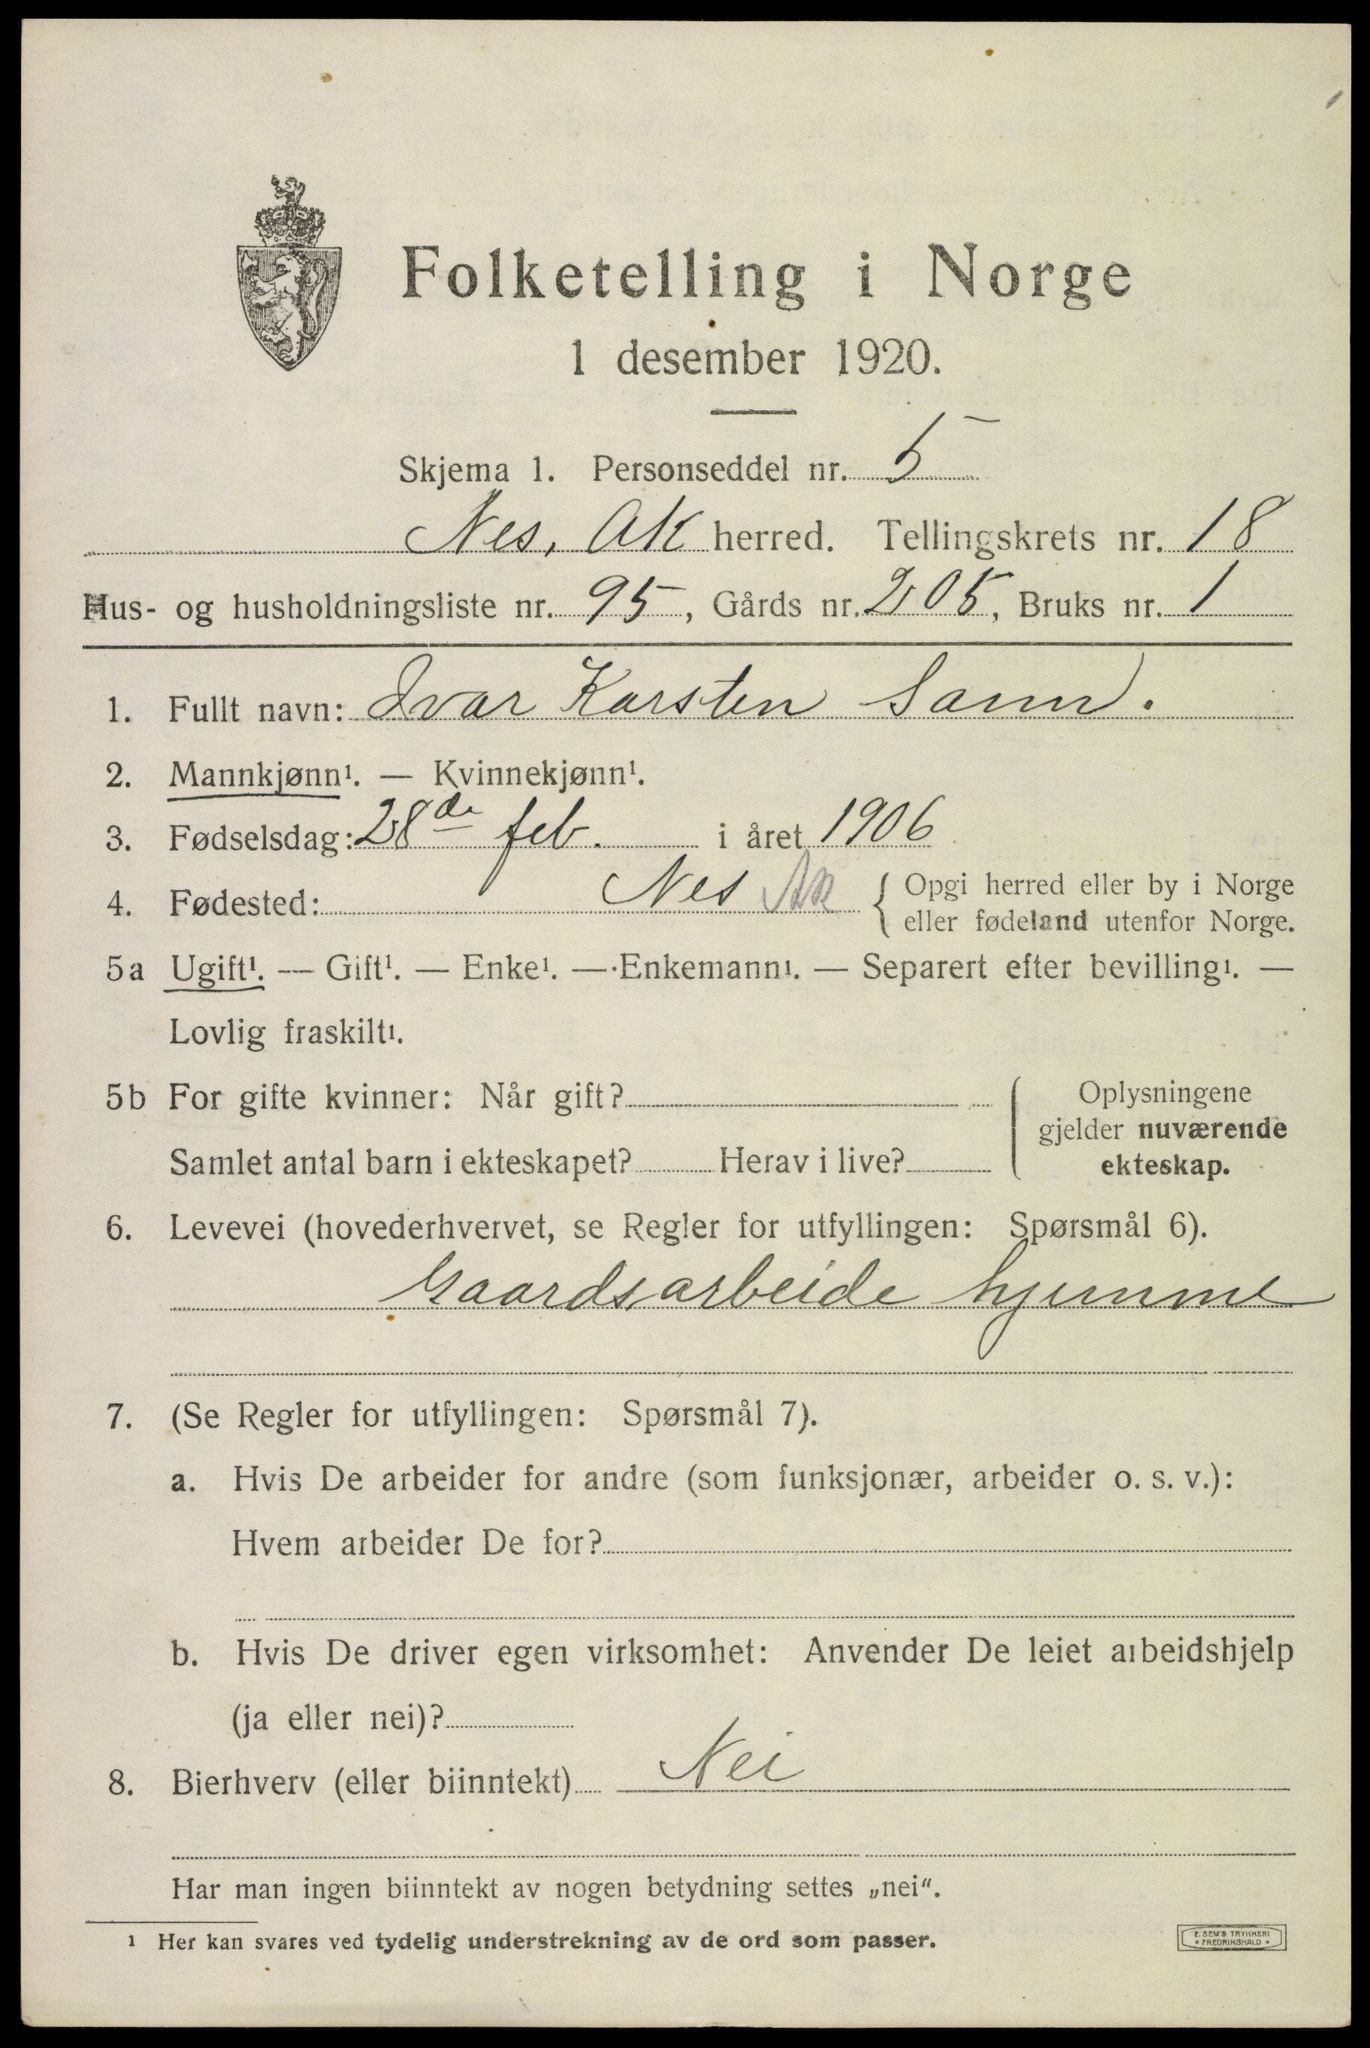 Folketelling i Norge
1 desember 1920.
Skjema 1. Personseddel nr. 5
Nes, AK herred. Tellingskrets nr. 18
Hus- og husholdningsliste nr. 95, Gårds nr. 205, Bruks nr. 1
1. Fullt navn: Ivar Karsten Sann.
2. Mannkjønn¹. — Kvinnekjønn¹.
3. Fødselsdag: 28de feb. i året 1906
4. Fødested: Nes AK { Opgi herred eller by i Norge
eller fødeland utenfor Norge.
5a Ugift¹. — Gift¹. — Enke¹. — Enkemann¹. — Separert efter bevilling¹. —
Lovlig fraskilt¹.
5b For gifte kvinner: Når gift?
Samlet antal barn i ekteskapet? Herav i live?
Oplysningene
gjelder nuværende
ekteskap.
6. Levevei (hovederhvervet, se Regler for utfyllingen: Spørsmål 6).
Gaardsarbeide hjemme
7. (Se Regler for utfyllingen: Spørsmål 7).
a. Hvis De arbeider for andre (som funksjonær, arbeider o. s. v.):
Hvem arbeider De for?
b. Hvis De driver egen virksomhet: Anvender De leiet arbeidshjelp
(ja eller nei)?
8. Bierhverv (eller biinntekt) Nei
Har man ingen biinntekt av nogen betydning settes „nei“.
¹ Her kan svares ved tydelig understrekning av de ord som passer.
E. SEM'S TRYKKERI
* FREDRIKSHALD *